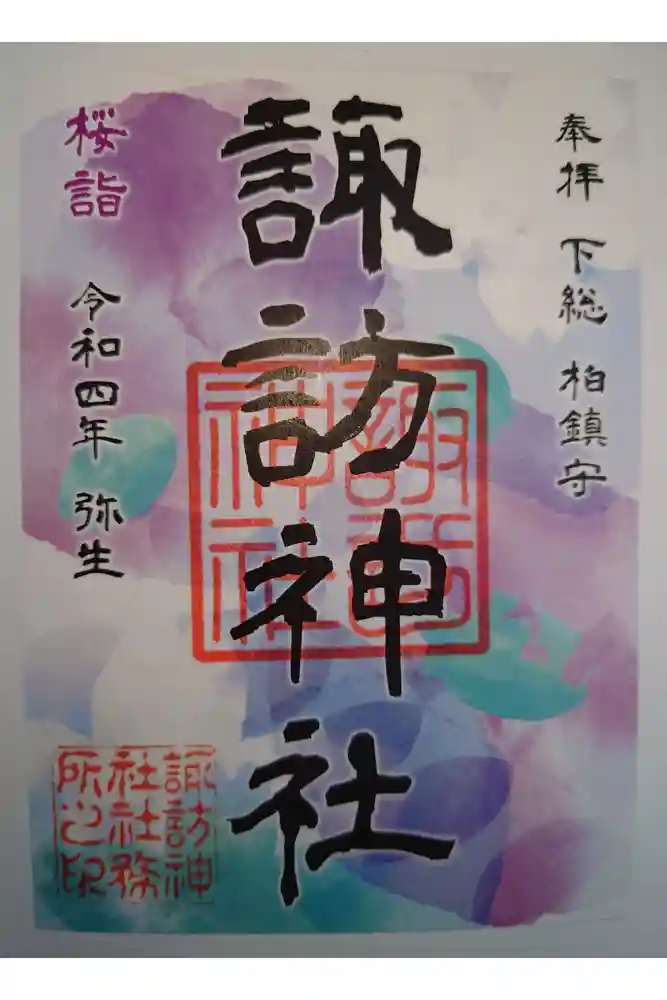 奉拝 下総 柏鎮守
諏訪神社
諏訪神社
桜詣 令和四年 弥生
諏訪神
社社務
所之印